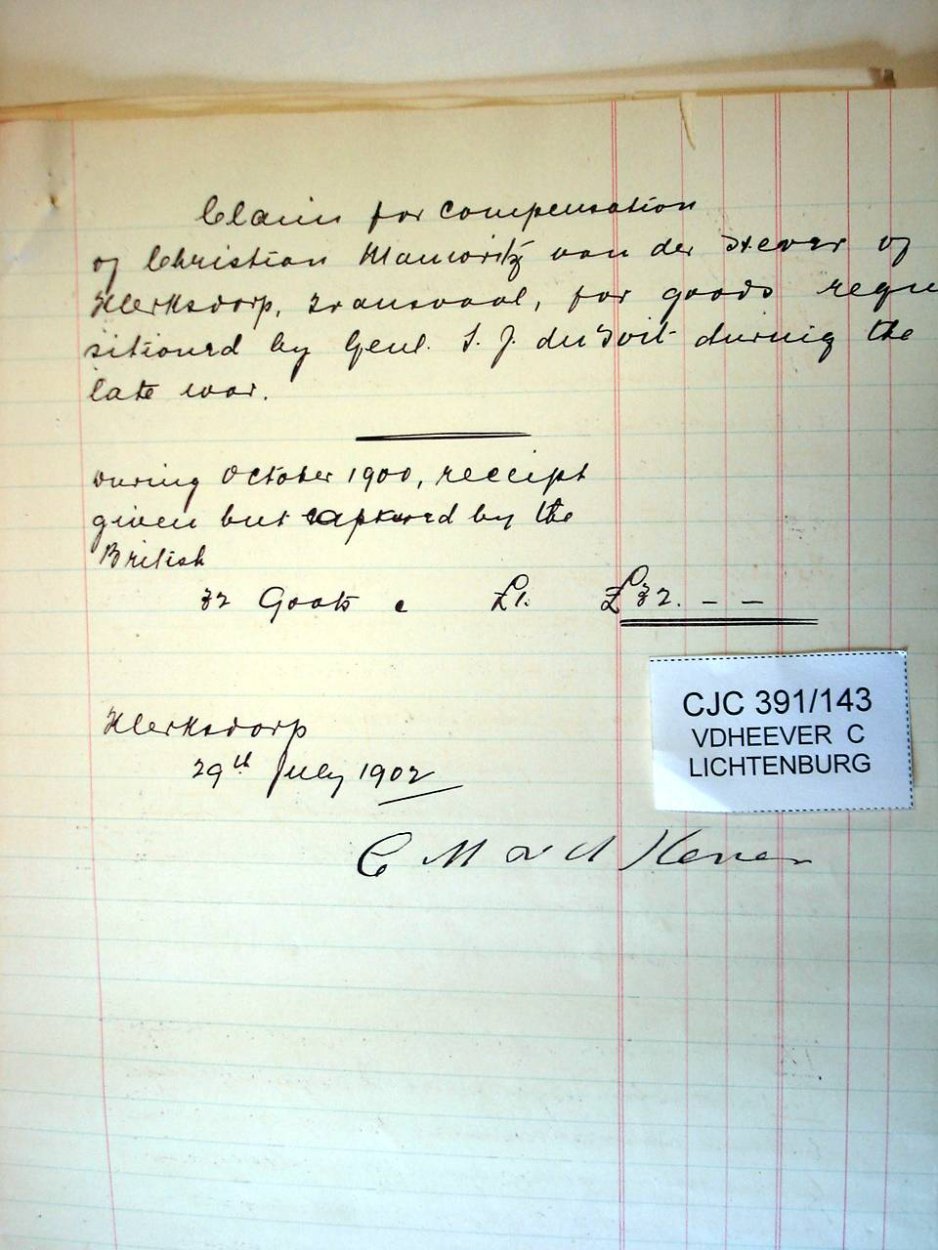 Claim for compensation
of Christian Mauworitz van der Hever of
Klerksdorp, Transvaal, for goods requi
sitioned by Genl. S. J. du Toit during the
late war.
During October 1900, receipt
given but captured by the
British
32 Goats @ £1. £32. – –
CJC 391/143
VDHEEVER C
LICHTENBURG
Klerksdorp
29th July 1902
C M v d Hever